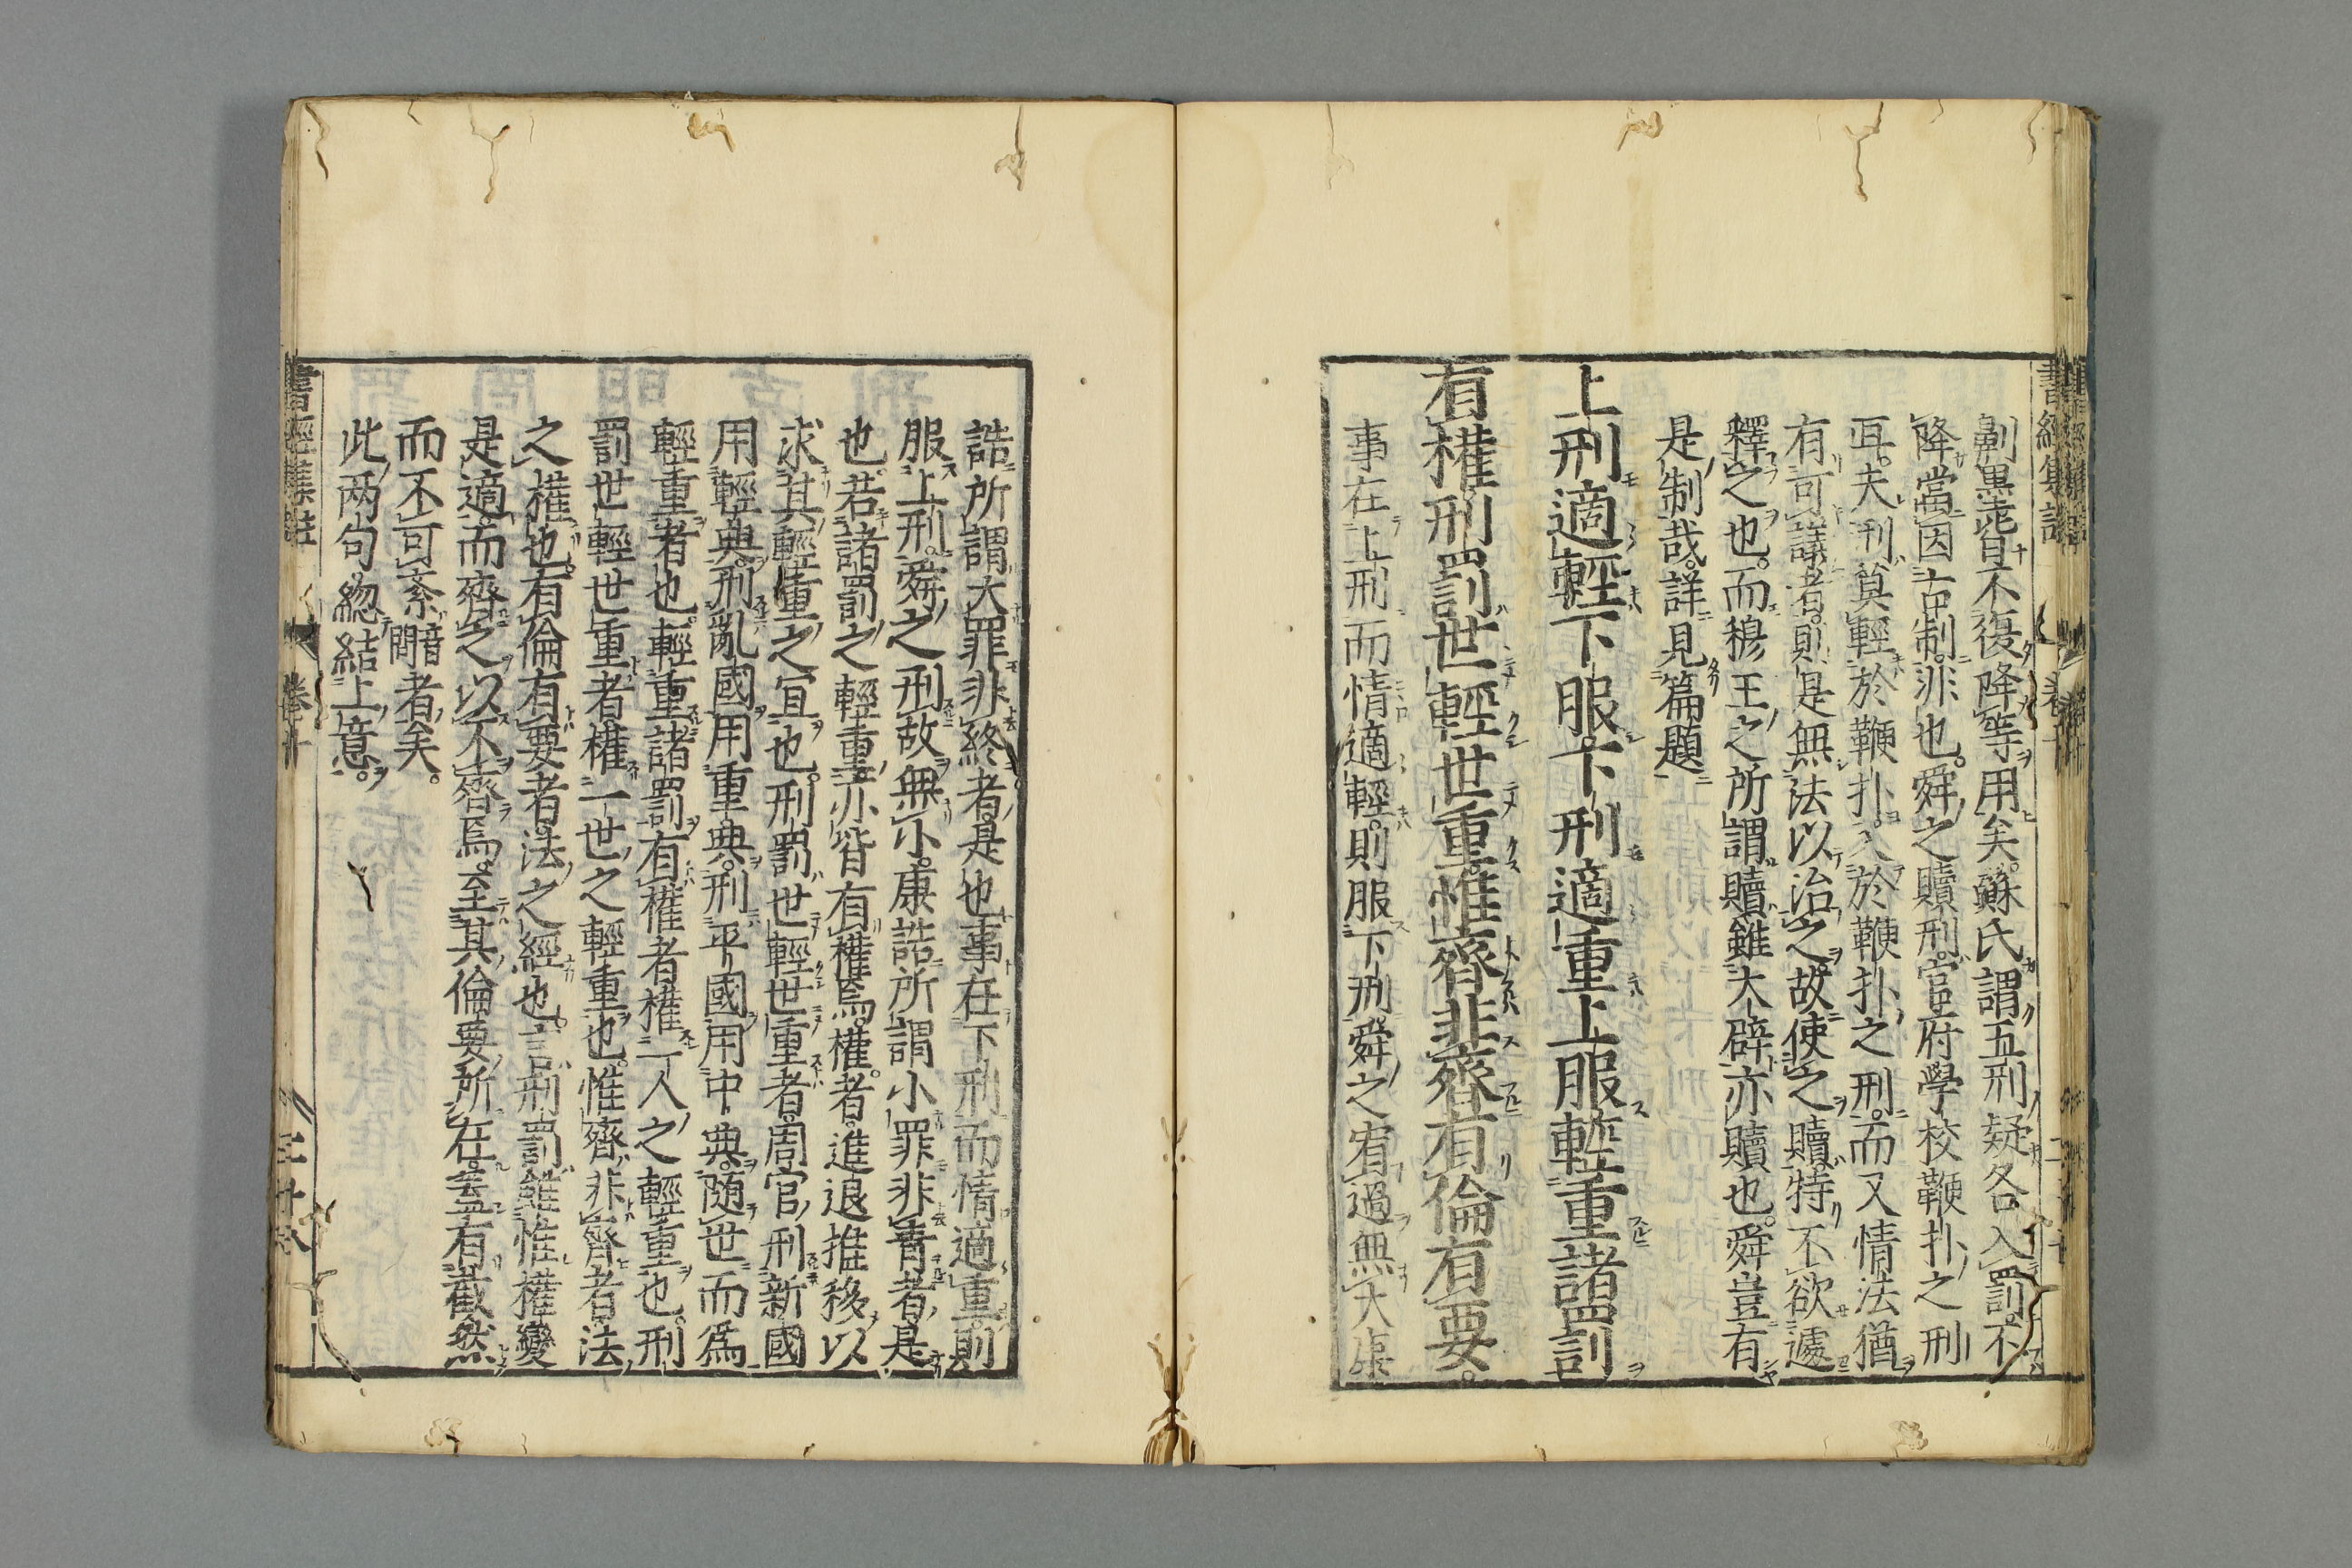 劓墨皆不復降等用矣。蘇氏謂五刑疑各入罰。不
降當因古制非也。舜之贖刑。官府學校鞭扑之刑
耳。夫刑莫輕於鞭扑。入於鞭扑之刑。而又情法猶
有可議者。則是無法以治之。故使之贖。特不欲遽
釋之也。而穆王之所謂贖。雖大辟亦贖也。舜豈有
是制哉。詳見篇題
上刑適輕下服。下刑適重上服。輕重諸罰
有權。刑罰世輕世重。惟齊非齊。有倫有要。
事在上刑。而情適輕。則服下刑。舜之宥過無大。康
誥所謂大罪非終者。是也。事在下刑。而情適重。則
服上刑。舜之刑故無小。康誥所謂小罪非眚者。是
也。若諸罰之輕重。亦皆有權焉。權者。進退推移。以
求其輕重之宜也。刑罰世輕世重者。周官。刑新國
用輕典。刑亂國用重典。刑平國用中典。隨世而爲
輕重者也。輕重諸罰有權者。權一人之輕重也。刑
罰世輕世重者。權一世之輕重也。惟齊非齊者。法
之權也。有倫有要者。法之經也。言刑罰雖惟權變
是適。而齊之以不齊焉。至其倫要所在。蓋有截然
而不可紊者矣。
此兩句總結上意。
書經集註
卷十
三十八